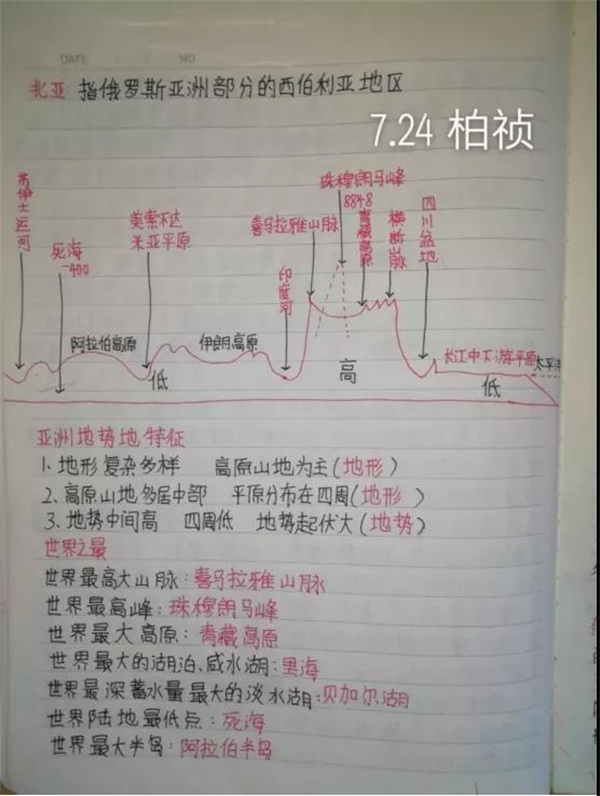 北亚 指俄罗斯亚洲部分的西伯利亚地区
7.24 柏祯
苏伊士运河
死海
-400
美索不达
米亚平原
喜马拉雅山脉
印度河
珠穆朗马峰
8848
青藏高原
横断山脉
四川盆地
阿拉伯高原
伊朗高原
长江中下游平原
太平洋
低
高
低
亚洲地势地特征
1、地形复杂多样 高原山地为主(地形)
2、高原山地多居中部 平原分布在四周(地形)
3、地势中间高 四周低 地势起伏大(地势)
世界之最
世界最高大山脉:喜马拉雅山脉
世界最高峰:珠穆朗马峰
世界最大高原:青藏高原
世界最大的湖泊、咸水湖:里海
世界最深蓄水量最大的淡水湖:贝加尔湖
世界陆地最低点:死海
世界最大半岛:阿拉伯半岛